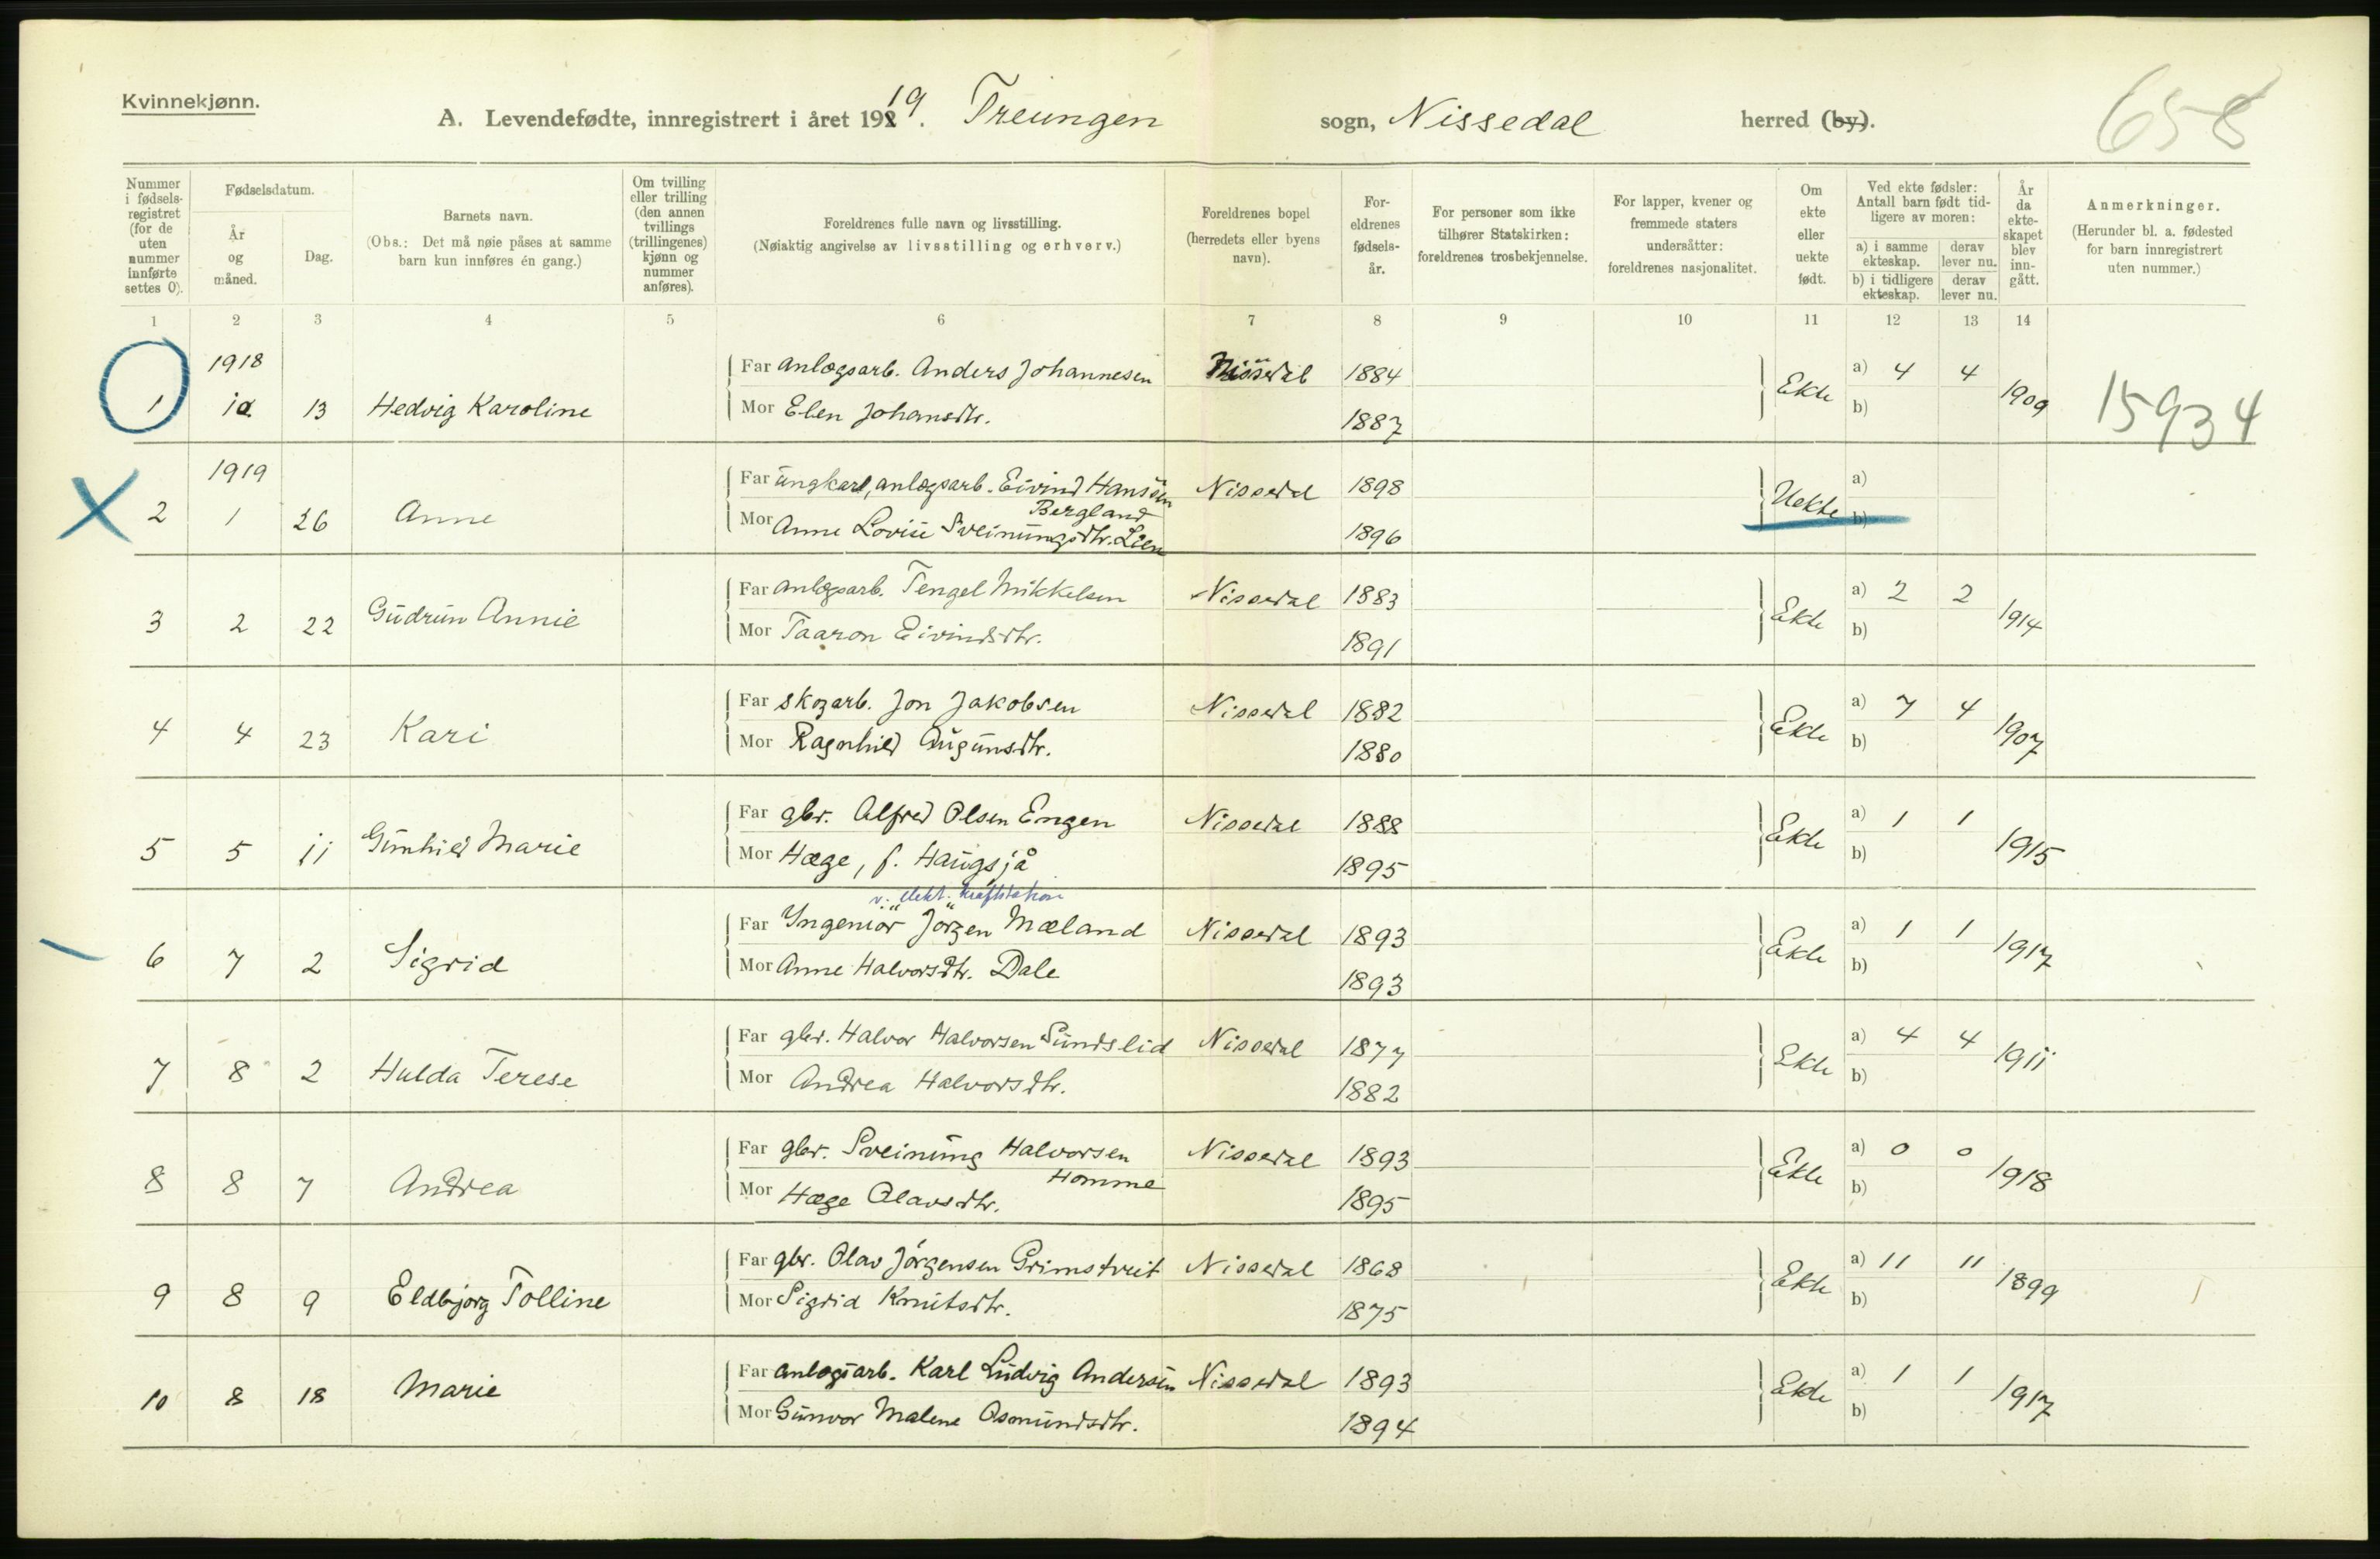 Kvinnekjønn.
A. Levendefødte, innregistrert i året 1919. Treungen sogn, Nissedal herred (by).
658
Nummer i fødselsregistret (for de uten nummer innførte settes 0).
Fødselsdatum.
År og måned.
Dag.
Barnets navn.
(Obs.: Det må nøie påses at samme barn kun innføres én gang.)
Om tvilling eller trilling (den annen tvillings (trillingenes) kjønn og nummer anføres).
Foreldrenes fulle navn og livsstilling.
(Nøiaktig angivelse av livsstilling og erhverv.)
Foreldrenes bopel (herredets eller byens navn).
Foreldrenes fødselsår.
For personer som ikke tilhører Statskirken: foreldrenes trosbekjennelse.
For lapper, kvener og fremmede staters undersåtter: foreldrenes nasjonalitet.
Om ekte eller uekte født.
Ved ekte fødsler: Antall barn født tidligere av moren:
a) i samme ekteskap. derav lever nu.
b) i tidligere ekteskap. derav lever nu.
År da ekteskapet blev inngått.
Anmerkninger.
(Herunder bl. a. fødested for barn innregistrert uten nummer.)
1 2 3 4 5 6 7 8 9 10 11 12 13 14
1918 Far anlægsarb. Anders Johannesen Nissedal 1884 Ekte a) 4 4 1909 15934
1 10. 13 Hedvig Karoline Mor Elen Johansdtr. 1887 b)
1919 Far ungkarl, anlægsarb. Eivind Hansen Bergland Nissedal 1898 Uekte a)
2 1 26 Anne Mor Anne Lovise Sveinungsdtr. Lien 1896 b)
Far anlægsarb. Tengel Mikkelsen Nissedal 1883 Ekte a) 2 2 1914
3 2 22 Gudrun Annie Mor Taaron Eivindsdtr. 1891 b)
Far skogarb. Jon Jakobsen Nissedal 1882 Ekte a) 7 4 1907
4 4 23 Kari Mor Ragnhild Augunsdtr. 1880 b)
Far gbr. Alfred Olsen Engen Nissedal 1888 Ekte a) 1 1 1915
5 5 11 Gunhild Marie Mor Hæge, f. Haugsjå 1895 b)
v. elekt. kraftstation
Far Ingeniør Jørgen Mæland Nissedal 1893 Ekte a) 1 1 1917
6 7 2 Sigrid Mor Anne Halvorsdtr. Dale 1893 b)
Far gbr. Halvor Halvorsen Sundslid Nissedal 1877 Ekte a) 4 4 1911
7 8 2 Hulda Terese Mor Andrea Halvorsdtr. 1882 b)
Far gbr. Sveinung Halvorsen Homme Nissedal 1893 Ekte a) 0 0 1918
8 8 7 Andrea Mor Hæge Olavsdtr. 1895 b)
Far gbr. Olav Jørgensen Grimstveit Nissedal 1868 Ekte a) 11 11 1899
9 8 9 Eldbjørg Tolline Mor Sigrid Knutsdtr. 1875 b)
Far anlægsarb. Karl Ludvig Andersen Nissedal 1893 Ekte a) 1 1 1917
10 8 18 Marie Mor Gunvor Malene Osmundsdtr. 1894 b)